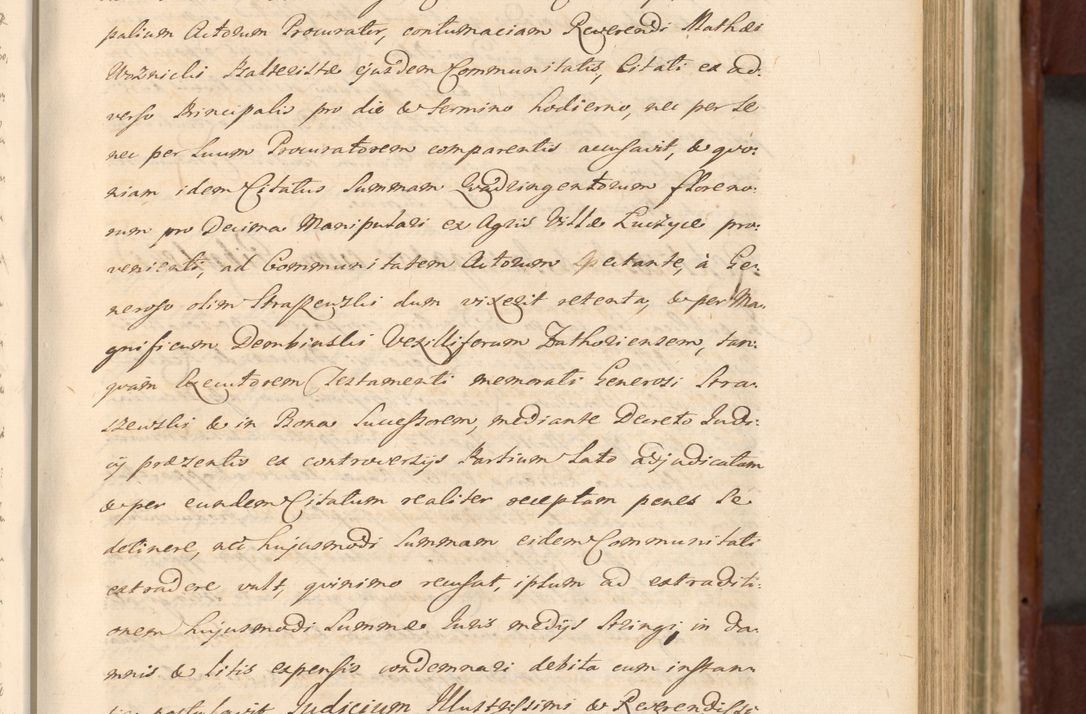 palium Actorum Procurator, contumaciam Reverendi Mathæi
Woznicki Psalteristæ ejusdem Communitatis, Citati ex ad:
verso Principalis pro die & termino hodierno, nec per se
nec per suum Procuratorem comparentis accusavit, & quo:
niam idem Citatus Summam Quadringentorum floreno:
rum pro Decima Manipulari ex Agris Villæ Luczyce pro:
venienti, ad Communitatem Actorum spectante, à Ge:
neroso olim Straszewski dum vixerit retenta, & per Ma:
gnificum Dembinski Vexilliferum Zathoriensem, tan:
quam Executorem Testamenti memorati Generosi Stra:
szewski & in Bona Successorem, mediante Decreto Judi:
cij præsentis ex controversijs Partium lato adjudicatam
& per eundem Citatum realiter receptam penes se
detinere, nec hujusmodi Summam eidem Communitati
extradere vult, quinimo recusat, ipsum ad extraditi:
onem hujusmodi Summæ Juris medijs stringi, in da:
mnis & litis expensis condemnari debita cum instan:
tia postulavit Judicium Illustrissimi & Reverendissi: